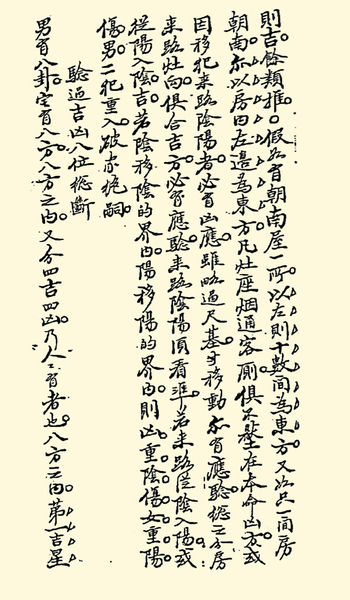 則吉。餘類推。假如有朝南屋一所。以左則十數間為東方。又如只一間房
朝南。亦以房內左邊為東方。凡灶座烟通客廁。俱不墜在本命凶方。或
因移犯來路陰陽者。必有凶應。雖略過尺基寸移動。亦有應驗。總之分房
來路灶向。俱合吉方。必有應驗。來路陰陽。須看準。若來路從陰入陽。或
從陽入陰。吉。若陰移陰的界內。陽移陽的界內。則凶。重陰傷女。重陽
傷男。二犯重入。破亦絕嗣。
驗過吉凶八位總斷
男有八卦。宅有八方。八方之內。又分四吉四凶。乃人人有者也。八方之內。第一吉星